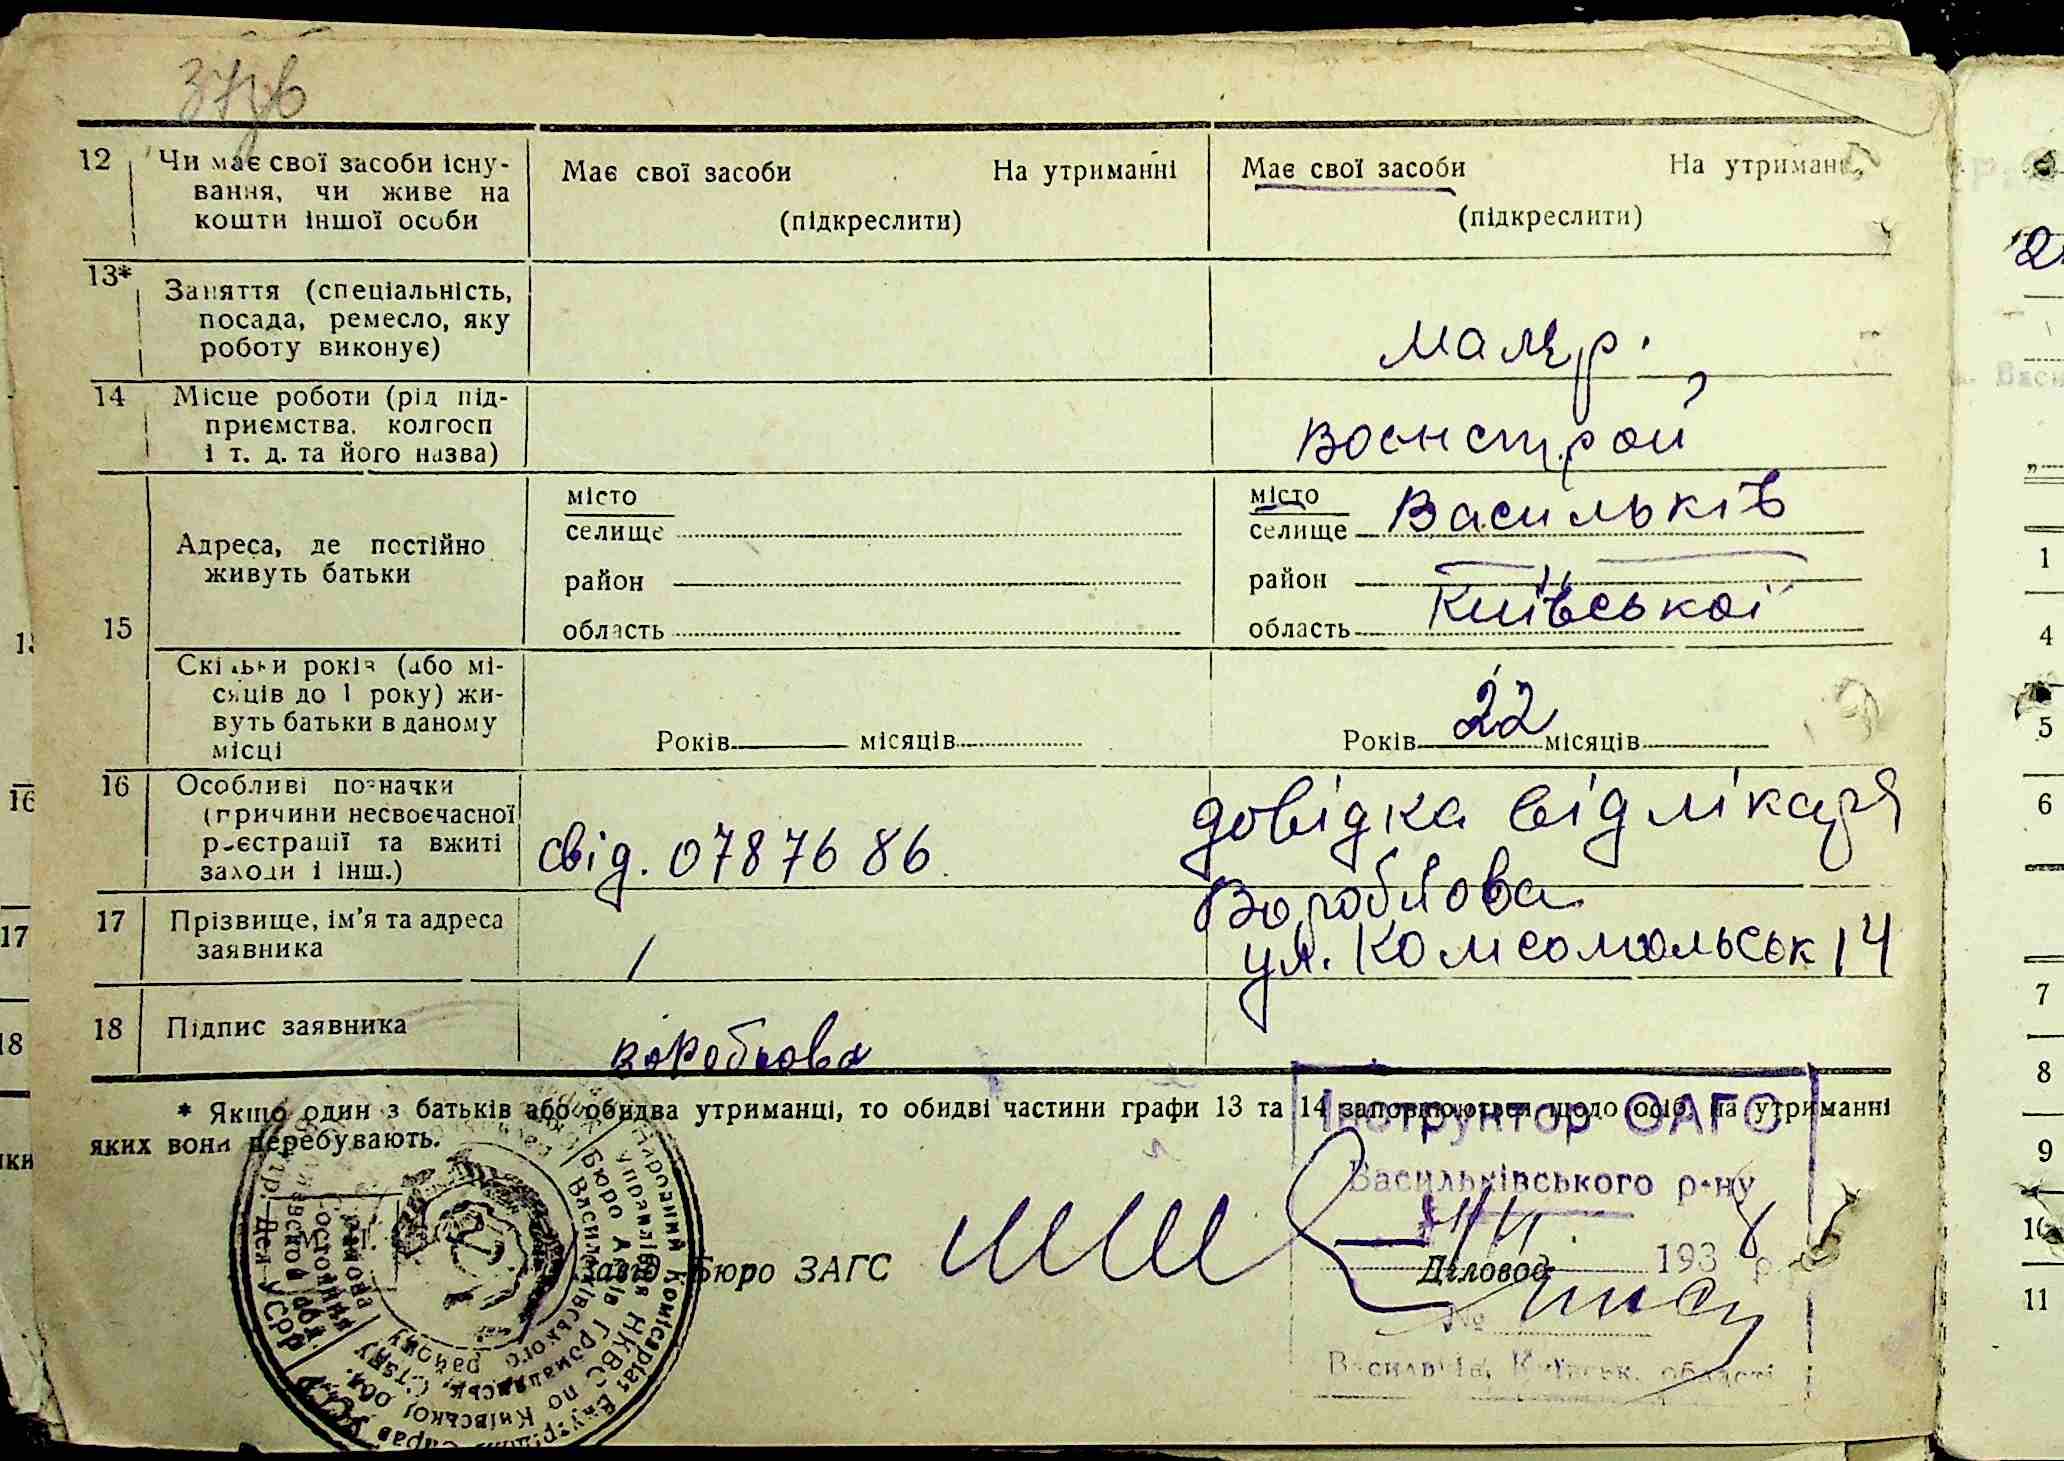 12 Чи має свої засоби існу-
вання, чи живе на
кошти іншої особи
Має свої засоби На утриманні
(підкреслити)
Має свої засоби На утриманні
(підкреслити)
13* Заняття (спеціальність,
посада, ремесло, яку
роботу виконує)
маляр.
14 Місце роботи (рід під-
приємства, колгосп
і т. д. та його назва)
Военстрой
15 Адреса, де постійно
живуть батьки
місто
селище
район
область
місто
селище Васильків
район
область Київської
Скільки років (або мі-
сяців до 1 року) жи-
вуть батьки в даному
місці
Років місяців
Років 22 місяців
16 Особливі позначки
(причини несвоєчасної
реєстрації та вжиті
заходи і інш.)
свід. 0787686
довідка від лікаря
17 Прізвище, ім'я та адреса
заявника
Воробйова
ул. Комсомольськ 14
18 Підпис заявника
Воробьова
* Якщо один з батьків або обидва утриманці, то обидві частини графи 13 та 14 заповнюються щодо осіб, на утриманні
яких вони перебувають.
Інструктор ОАГС
Васильківського р-ну
Завід. Бюро ЗАГС
Діловод
193 8 р.
№
Васильків, Київськ. області
Народний Комісаріат Внутрішніх Справ УСРР
Управління НКВС по Київської обл.
Бюро Актів Громадянськ. Стану
Васильківського району
1
4
5
6
7
8
9
10
11
16
17
18